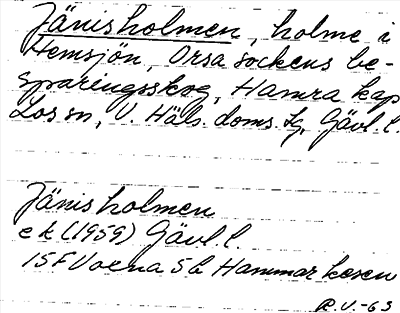 Jänisholmen, holme i
Hemsjön, Orsa sockens be-
sparingsskog, Hamra kap
Los sn, V. Häls. doms. fg, Gävl. l.
Jänisholmen
ek (1959) Gävl. l.
15F Voxna 5b Hammarkosen
R.V.-63